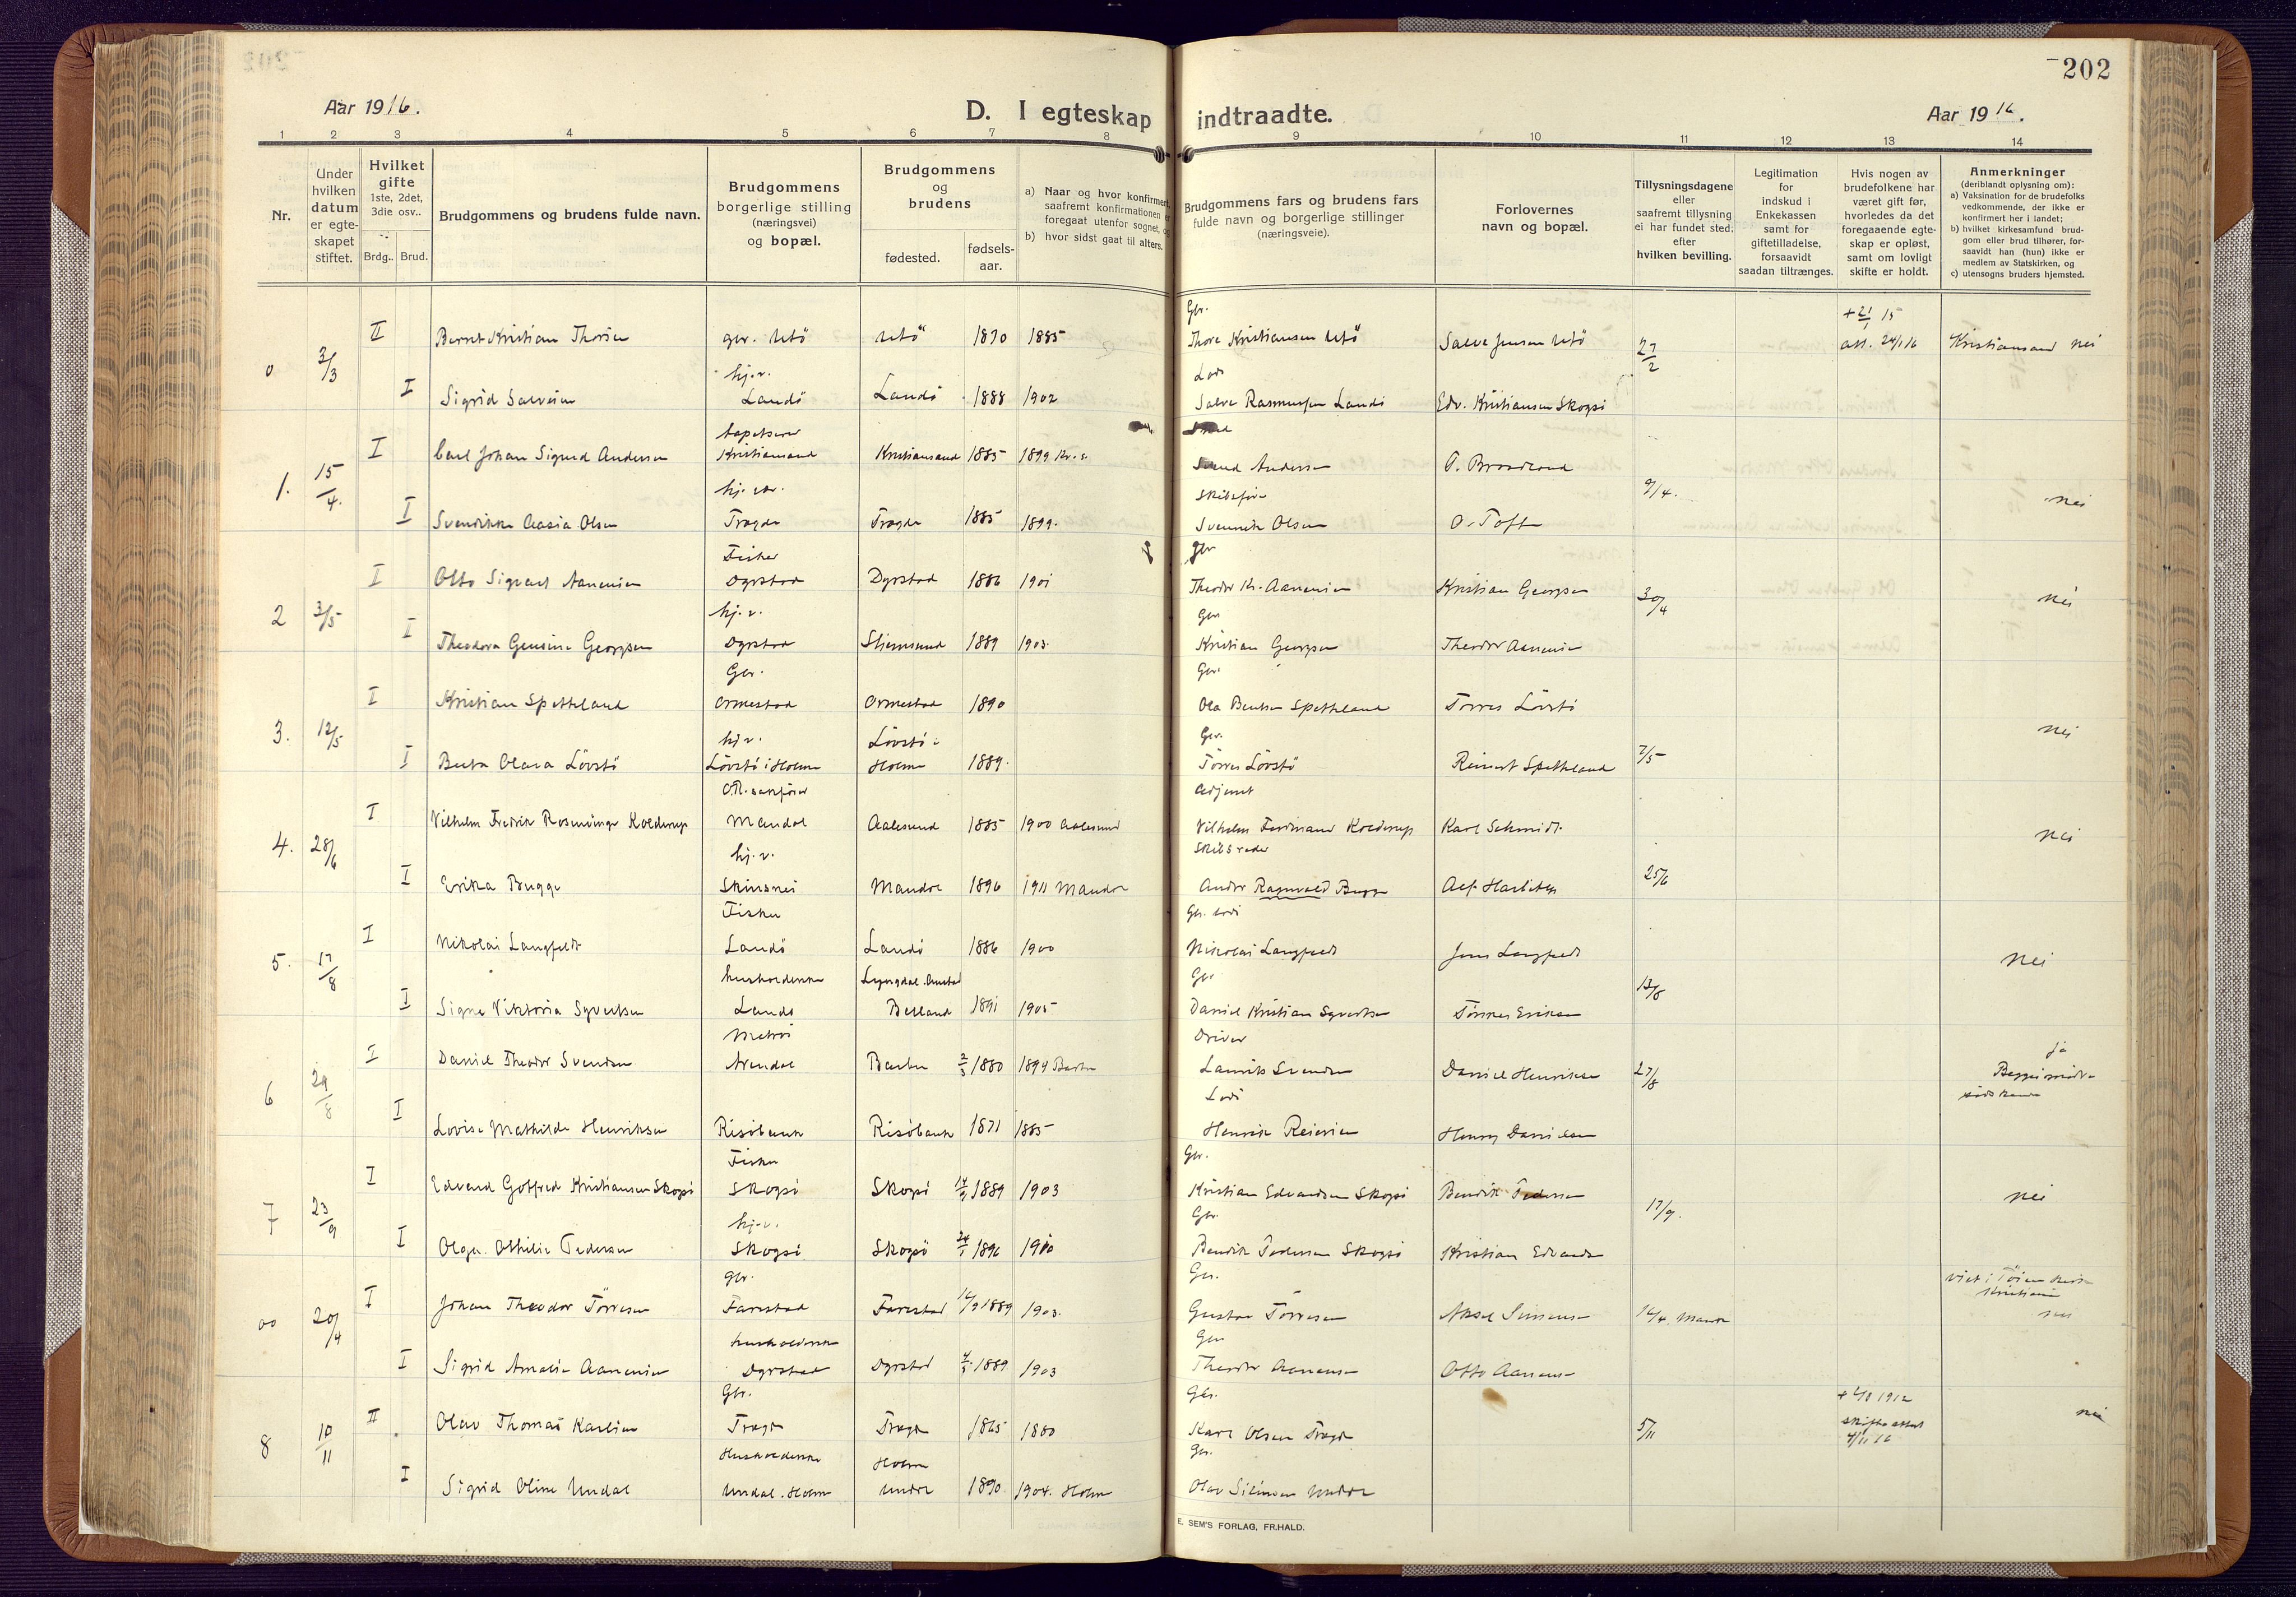 202
Aar 1916.
D. I egteskap indtraadte.
Aar 1916.
1 2 3 4 5 6 7 8 9 10 11 12 13 14
Nr.
Under hvilken datum er egteskapet stiftet.
Hvilket gifte 1ste, 2det, 3die osv..
Brdg.. Brud.
Brudgommens og brudens fulde navn.
Brudgommens borgerlige stilling (næringsvei) og bopæl.
Brudgommens og brudens
fødested.
fødsels-aar.
a) Naar og hvor konfirmert, saafremt konfirmationen er foregaat utenfor sognet, og
b) hvor sidst gaat til alters.
Brudgommens fars og brudens fars fulde navn og borgerlige stillinger (næringsveie).
Forlovernes navn og bopæl.
Tillysningsdagene eller saafremt tillysning ei har fundet sted; efter hvilken bevilling.
Legitimation for indskud i Enkekassen samt for giftetilladelse, forsaavidt saadan tiltrænges.
Hvis nogen av brudefolkene har været gift før, hvorledes da det foregaaende egteskap er opløst, samt om lovligt skifte er holdt.
Anmerkninger (deriblandt oplysning om):
a) Vaksination for de brudefolks vedkommende, der ikke er konfirmert her i landet;
b) hvilket kirkesamfund brudgom eller brud tilhører, forsaavidt han (hun) ikke er medlem av Statskirken, og
c) utensogns bruders hjemsted.
Gbr. + 21/1 15
0 3/3 II Bernt Kristian Thorsen gbr. Utö Utö 1870 1885 Thore Kristiansen Utö Salve Jensen Utö 27/2 att. 24/1 16 Kristiansand nei
hj.v. Lods
I Sigrid Salvesen Landö Landö 1888 1902 Salve Rasmussen Landö Edv. Kristiansen Skogsö
tapetserer
1. 15/4. I Carl Johan Sigurd Andersen Kristiansand Kristiansand 1885 1899 Kr.s. Andersen 9/4. nei
Skibsfører
I Aasia Olsen Tregde Tregde 1885 1899. Olsen O. Toft
Fisker gbr
2 3/5 I Otto Sigvart Aanensen Dyrstad Dyrstad 1886 1901 Theodor Kr. Aanensen Kristian Georgsen 30/4 nei
hj.v. Gbr
I Theodora Georgsen Dyrstad 1889 1903. Kristian Georgsen Theodor Aanensen
Gbr. Gbr
3. 12/5 I Kristian Spetteland Ormestad Ormestad 1890 Ola Bentsen Spetteland Torres Lövstö nei
hj v. Lövstö i Gbr.
I Berta Olava Lövstö Lövstö i Holme Holme 1889. Törres Lövstö Reinert Spetteland 7/5
O.R.sakfører Adjunkt
4. 28/6 I Vilhelm Fredrik Rosenvinge Kolderup Mandal Aalesund 1885 1900 Aalesund Vilhelm Ferdinand Kolderup Karl Schmidt nei
hj.v. Skibsreder
I Erika Bugge Skinsnes Mandal 1896 1911 Mandal Andor Ragnvald Bugge 25/6
Fisker Gbr. Lods
5. 17/8 I Nikolai Langfeldt Landö Landö 1886 1900 Nikolai Langfeldt Jens Langfeldt nei
husholderske Lyngdal Gbr
I Signe Viktoria Syvertsen Landö 1891 1905 Daniel Kristian Syvertsen Eriksen 13/8
Matros
6 29/8 I Daniel Theodor Svendsen Arendal Barbu 2/3 1880 1894 Barbu Svendsen Daniel Henriksen 27/8 ja
Lods
I Lovise Mathilde Henriksen Risöbank Risöbank 1871 1885 Henrik Reiersen Henry Danielsen
Fisker Gbr.
7 23/9 I Edvard Gotfred Kristiansen Skogsö Skogsö Skogsö 14/9 1889 1903 Kristian Edvardsen Skogsö Bendik Pedersen 17/9. nei
hj.v. Gbr
I Olga Othilie Pedersen Skogsö Skogsö 24/1 1896 1910 Bendik Pedersen Skogsö Kristian Edvardsen
gbr. Gbr. viet i Töien kirke Kristiania
00 20/4 I Johan Theodor Törresen Farestad Farestad 1889 1903. Gustav Törresen Aksel 16/4. Mandal nei
husholderske Gbr
I Sigrid Amalie Aanensen Dyrstad Dyrstad 4/5 1889 1903 Theodor Aanensen Otto Aanensen
Gbr. Gbr. + 2/8 1912
8 10/11 II Olav Thomas Karlsen Tregde Tregde 1865 1880 Karl Olsen Tregde 5/11 skifteattest 4/11 16 nei
Husholderske Holme Gbr.
I Sigrid Oline Undal Undal. Holme Undal 1890 1904. Holme Olav Undal
E. SEM'S FORLAG, FR.HALD.